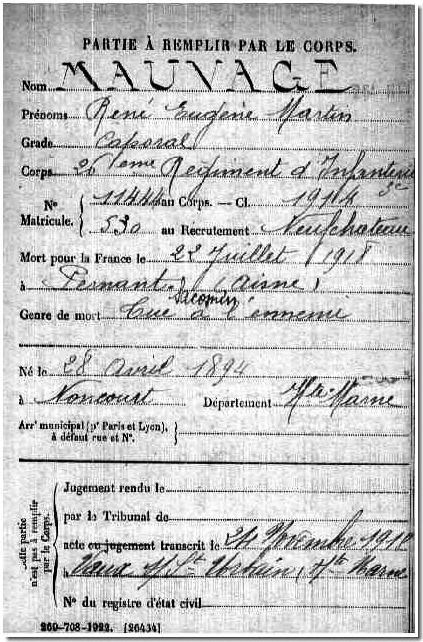 PARTIE À REMPLIR PAR LE CORPS.
Nom MAUVAGE
Prénoms René Eugène Martin
Grade Caporal
Corps 26 ième Régiment d'Infanterie
N° 11444 au Corps. — Cl. 1914
Matricule. 530 au Recrutement Neufchateau
Mort pour la France le 22 Juillet 1918
à Pernant (Aisne)
Genre de mort Tué à l'ennemi
Né le 28 Avril 1894
à Noncourt Département Hte Marne
Arrt municipal (pr Paris et Lyon),
à défaut rue et N°.
Cette partie
n'est pas à remplir
par le Corps.
Jugement rendu le
par le Tribunal de
acte ou jugement transcrit le 24 Novembre 1918
Vaux s/ St Urbain, Hte Marne
N° du registre d'état civil
269-708-1922. [26434]